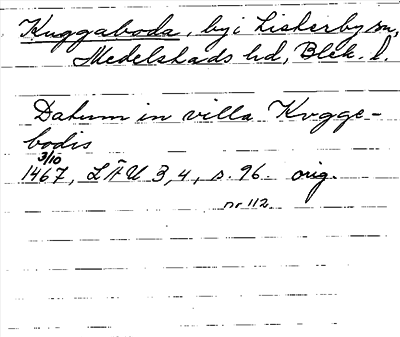 Kuggaboda, by i Listerby sn,
Medelstads hd, Blek. l.
Datum in villa Kvgge-
bodis
3/10
1467, LÄU 3, 4, s. 96. orig.
nr 112